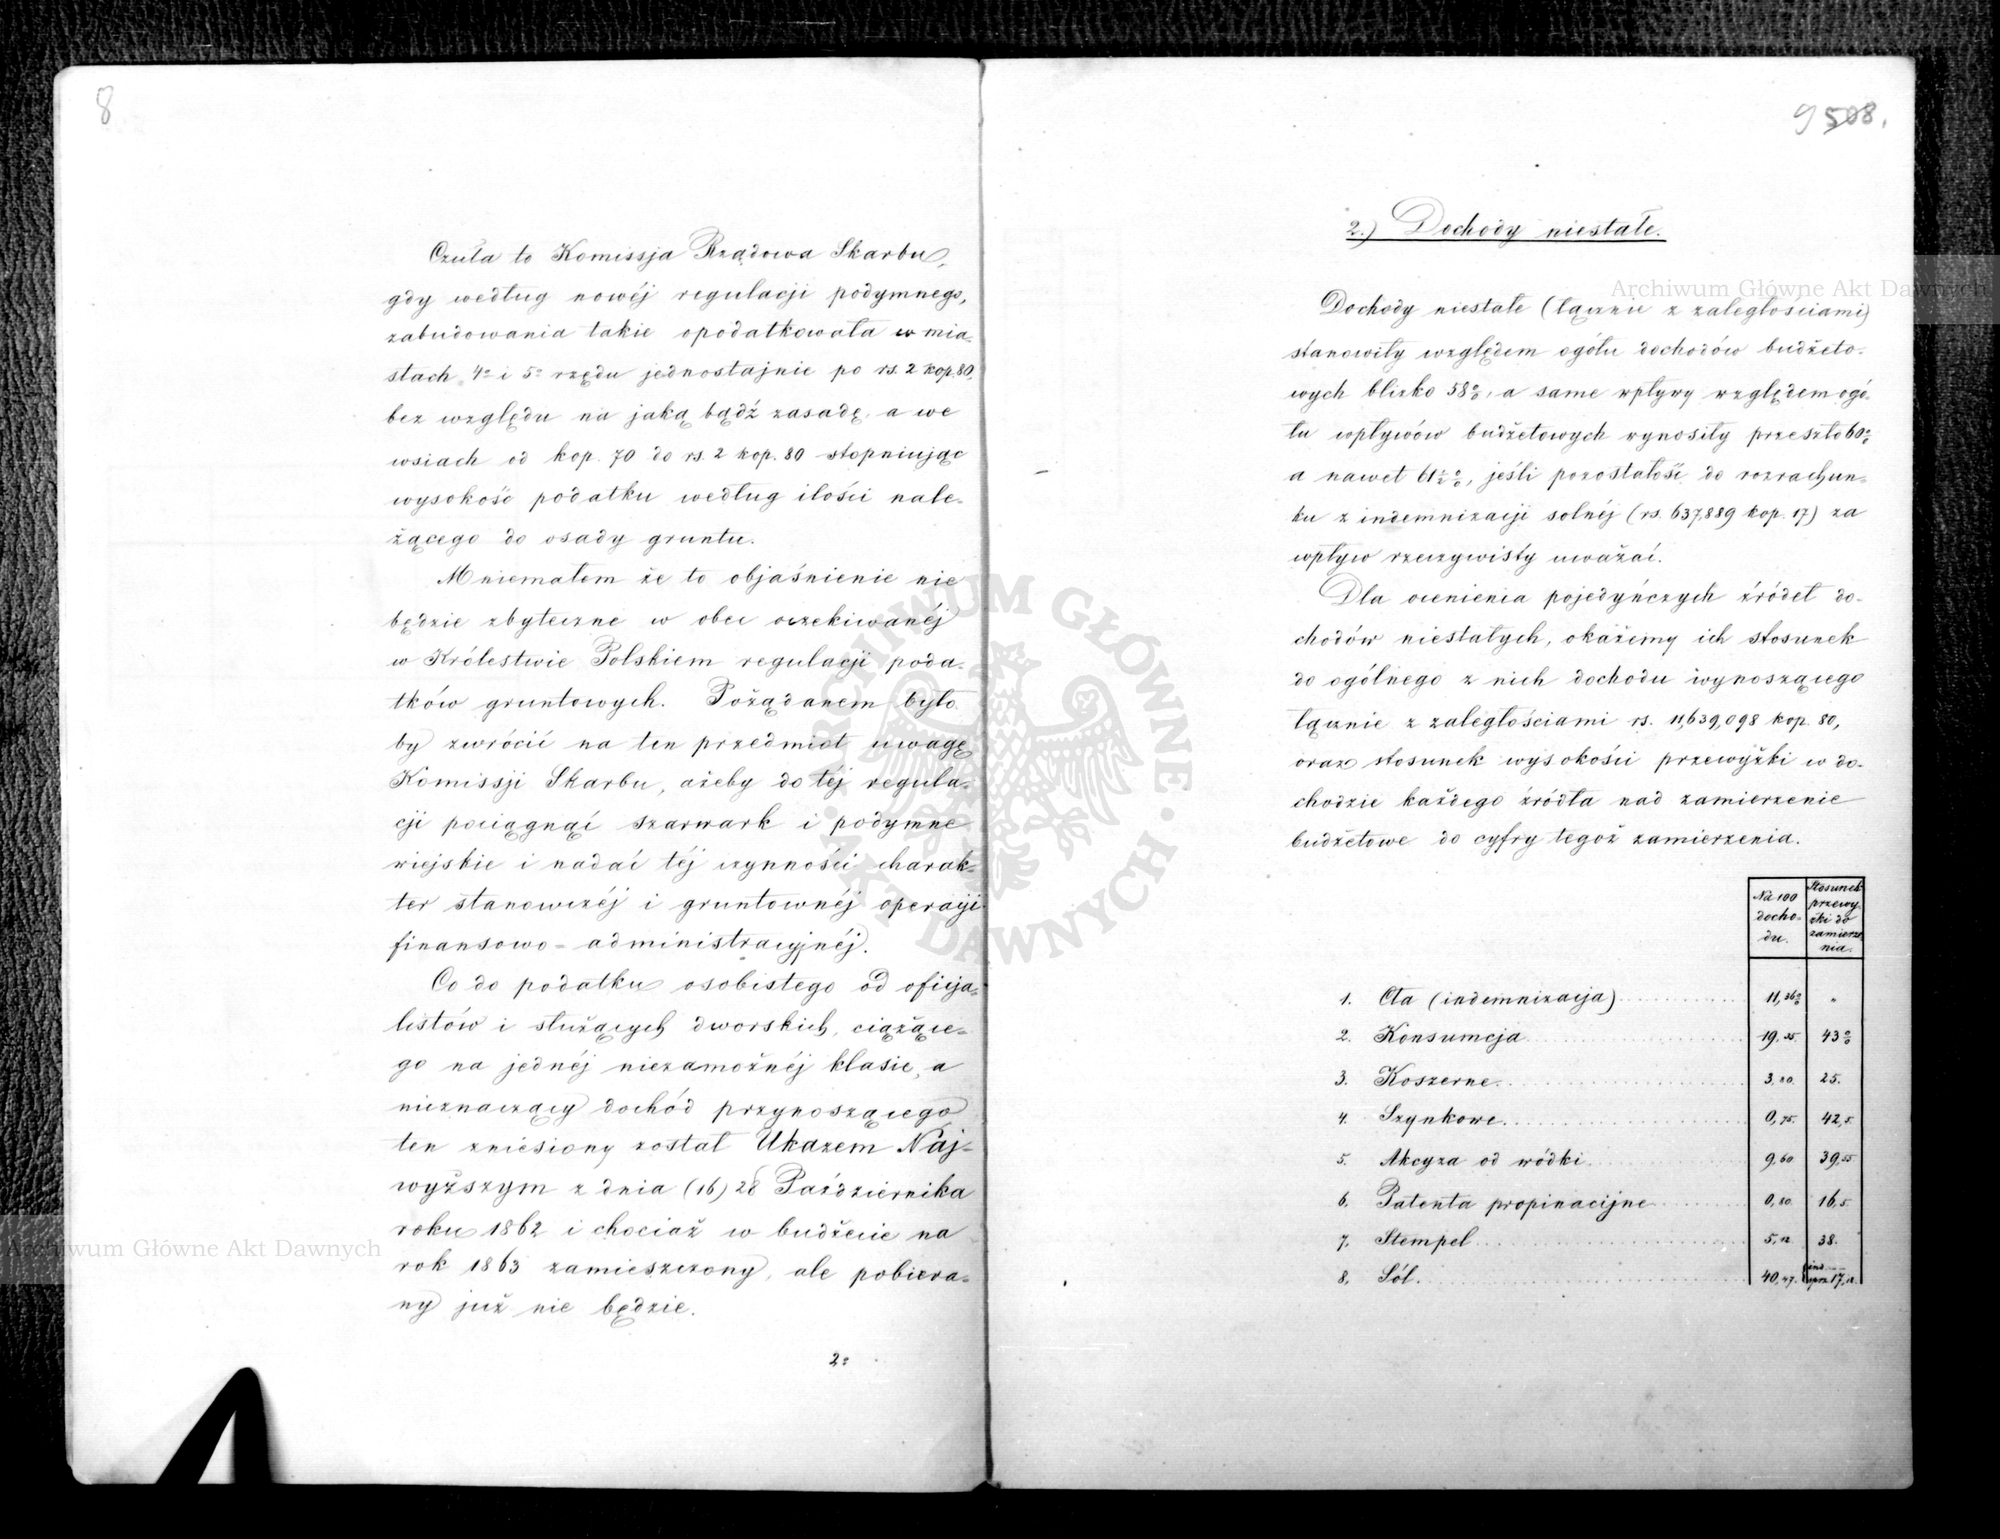 8
Czuła to Komissja Rządowa Skarbu,
gdy według nowéj regulacji podymnego,
zabudowania takie opodatkowała w mia-
stach 4º i 5º rzędu jednostajnie po rs. 2 kop. 80,
bez względu na jaką bądź zasadę, a we
wsiach od kop. 70 do rs. 2 kop. 80 stopniując
wysokość podatku według ilości nale-
żącego do osady gruntu.
Mniemałem że to objaśnienie nie
będzie zbyteczne w obec oczekiwanéj
w Królestwie Polskiem regulacji poda-
tków gruntowych. Pożądanem było
by zwrócić na ten przedmiot uwagę
Komissji Skarbu, ażeby do téj regula-
cji pociągnąć szarwark i podymne
wiejskie i nadać téj czynności charak-
ter stanowczéj i gruntownéj operacji
finansowo-administracyjnéj.
Co do podatku osobistego od oficja-
listów i służących dworskich, ciążące-
go na jednéj niezamożnéj klasie, a
nieznaczący dochód przynoszącego
ten zniesiony został Ukazem Naj-
wyższym z dnia (16) 28 Października
roku 1862 i chociaż w budżecie na
rok 1863 zamieszczony, ale pobiera-
ny już nie będzie.
2º
9 508.
2.) Dochody niestałe.
Dochody niestałe (łącznie z zaległościami)
stanowiły względem ogółu dochodów budżeto-
wych blizko 58%, a same wpływy względem ogó-
łu wpływów budżetowych wynosiły przeszło 60%
a nawet 61½%, jeśli pozostałość do rozrachun-
ku z indemnizacji solnéj (rs. 637,889 kop. 17) za
wpływ rzeczywisty uważać.
Dla ocenienia pojedyńczych źródeł do-
chodów niestałych, okażemy ich stosunek
do ogólnego z nich dochodu wynoszącego
łącznie z zaległościami rs. 11,639,098 kop. 80,
oraz stosunek wysokości przewyżki w do-
chodzie każdego źródła nad zamierzenie
budżetowe do cyfry tegoż zamierzenia.
Na 100 docho-du. Stosunek przewyżki do zamierze-nia.
1. Cła (indemnizacja) 11,36% "
2. Konsumcja 19,55 43%
3. Koszerne 3,80. 25.
4. Szynkowe 0,75. 42,5.
5. Akcyza od wódki 9,60 39,55
6. Patenta propinacijne 0,80. 16,5.
7. Stempel 5,12 38.
8. Sól. 40,47. 17,12.
Archiwum Główne Akt Dawnych
Archiwum Główne Akt Dawnych
ARCHIWUM GŁÓWNE · AKT DAWNYCH ·